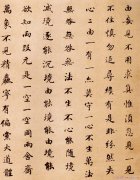 由妄見不用求真唯須息見二見
不住慎勿追尋纔有是非紛然失
心二由一有一亦莫守一心不生萬法
無咎無咎無法不生不心能隨境
滅境逐能沉境由能境能由境能
欲知兩段元是一空一空同兩齊含
萬象不見精麤寧有偏黨大道體